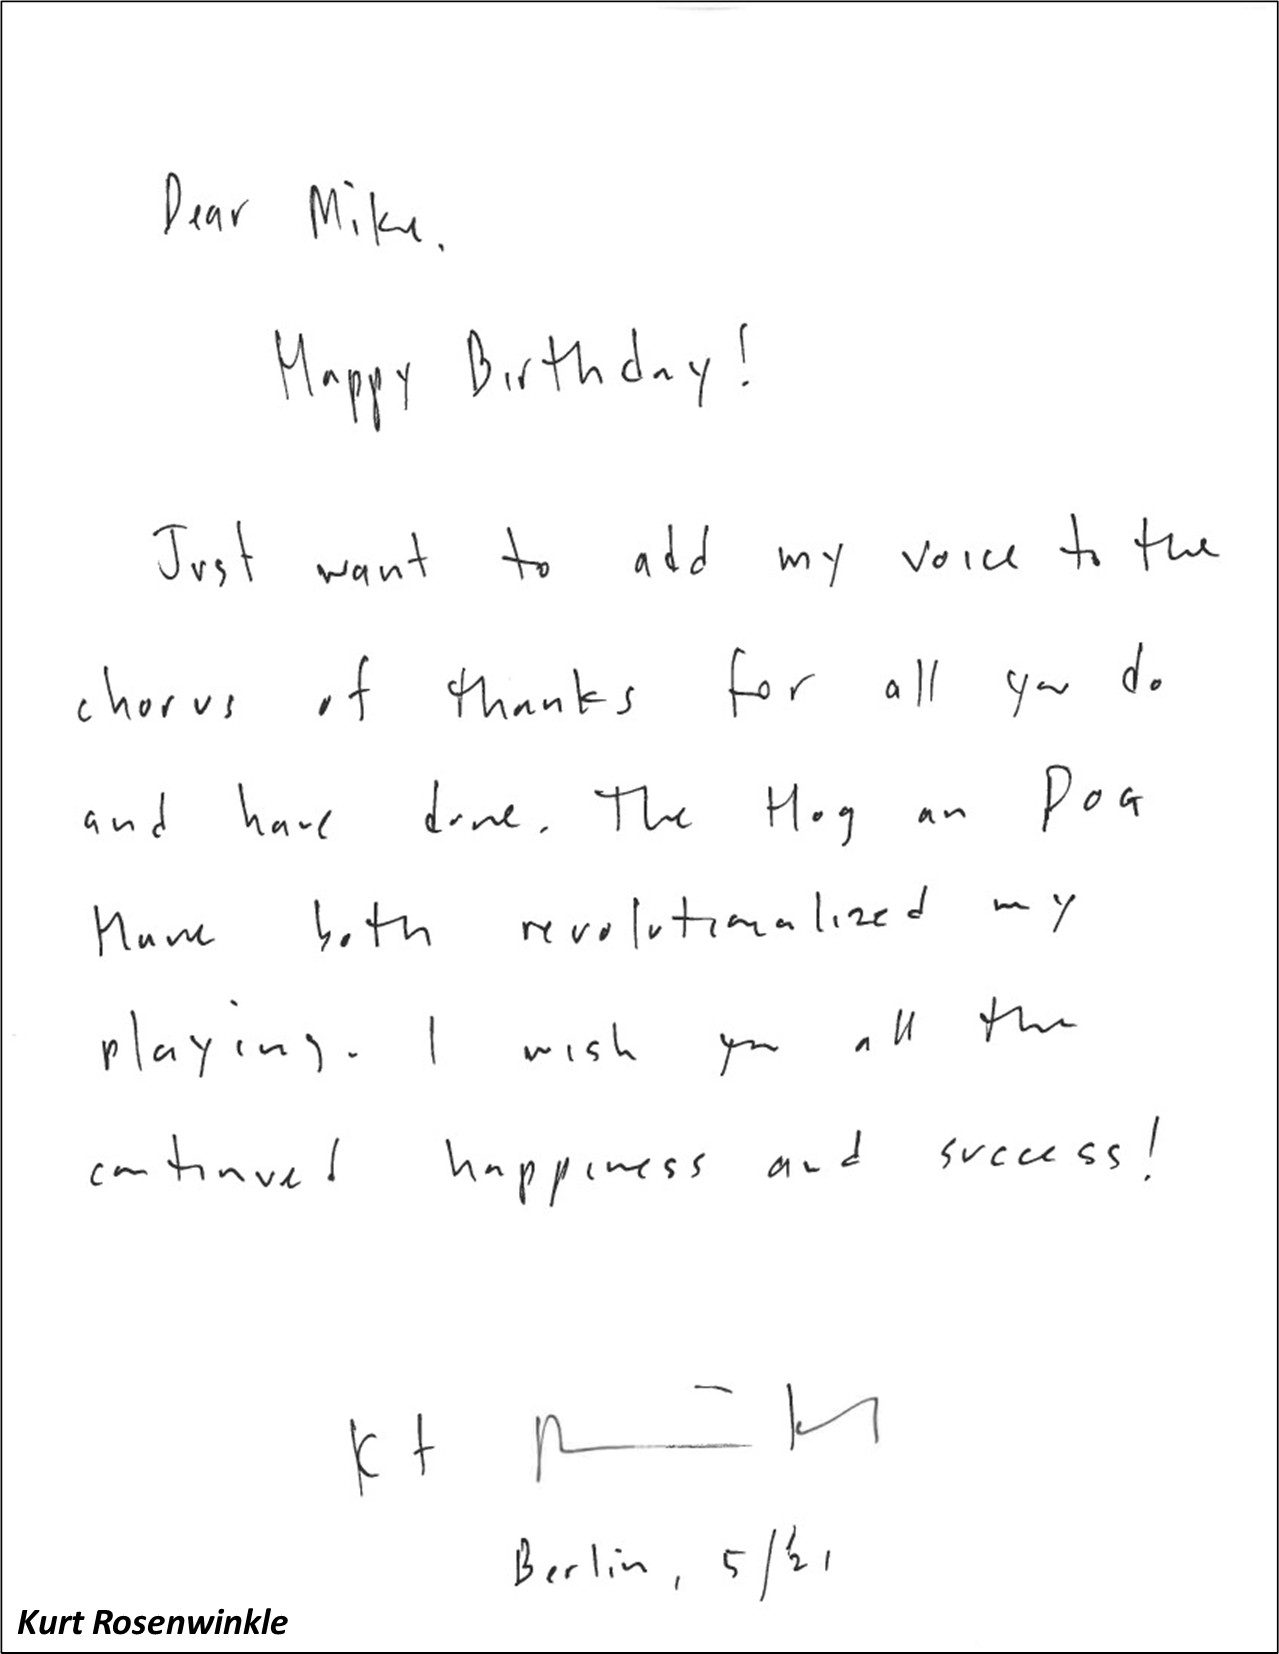 Dear Mike.
Happy Birthday!
Just want to add my voice to the
chorus of thanks for all you do
and have done. The Hog an POG
Have both revolutionalized my
playing. I wish you all the
continued happiness and success!
Berlin, 5/21
Kurt Rosenwinkle